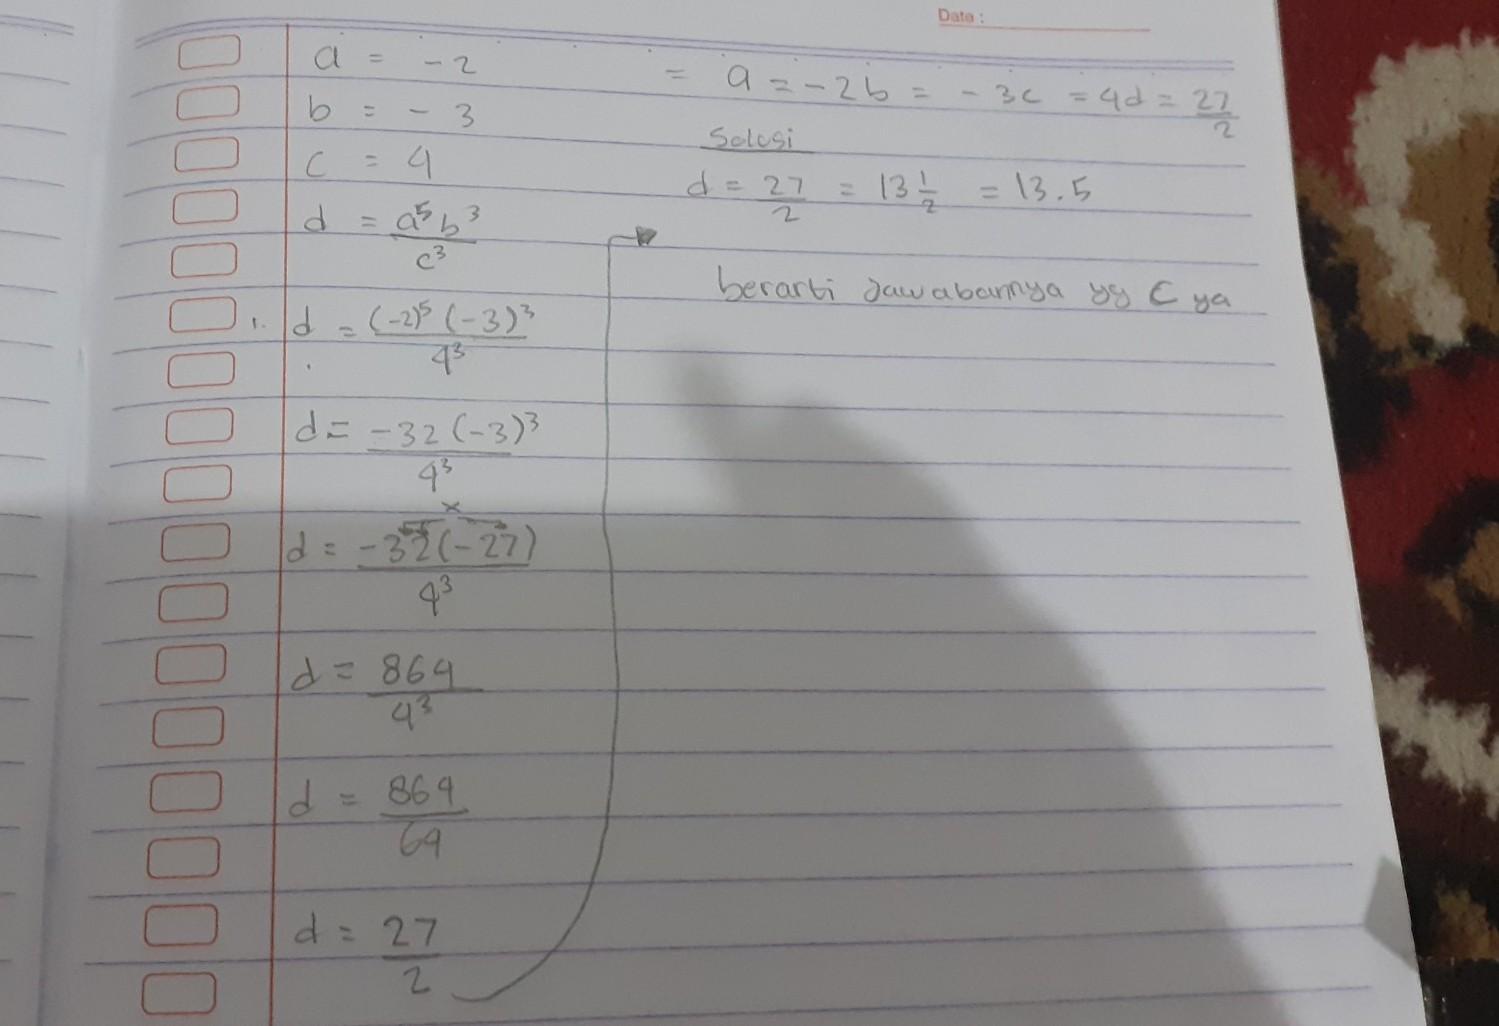 Date :
a = -2
b = -3
c = 4
d = a⁵b³/c³
1. d = (-2)⁵ (-3)³/4³
d = -32 (-3)³/4³
×
d = -32(-27)/4³
d = 864/4³
d = 864/64
d = 27/2
= a = -2b = -3c = 4d = 27/2
Solusi
d = 27/2 = 13 1/2 = 13.5
berarti Jawabannya yg C ya